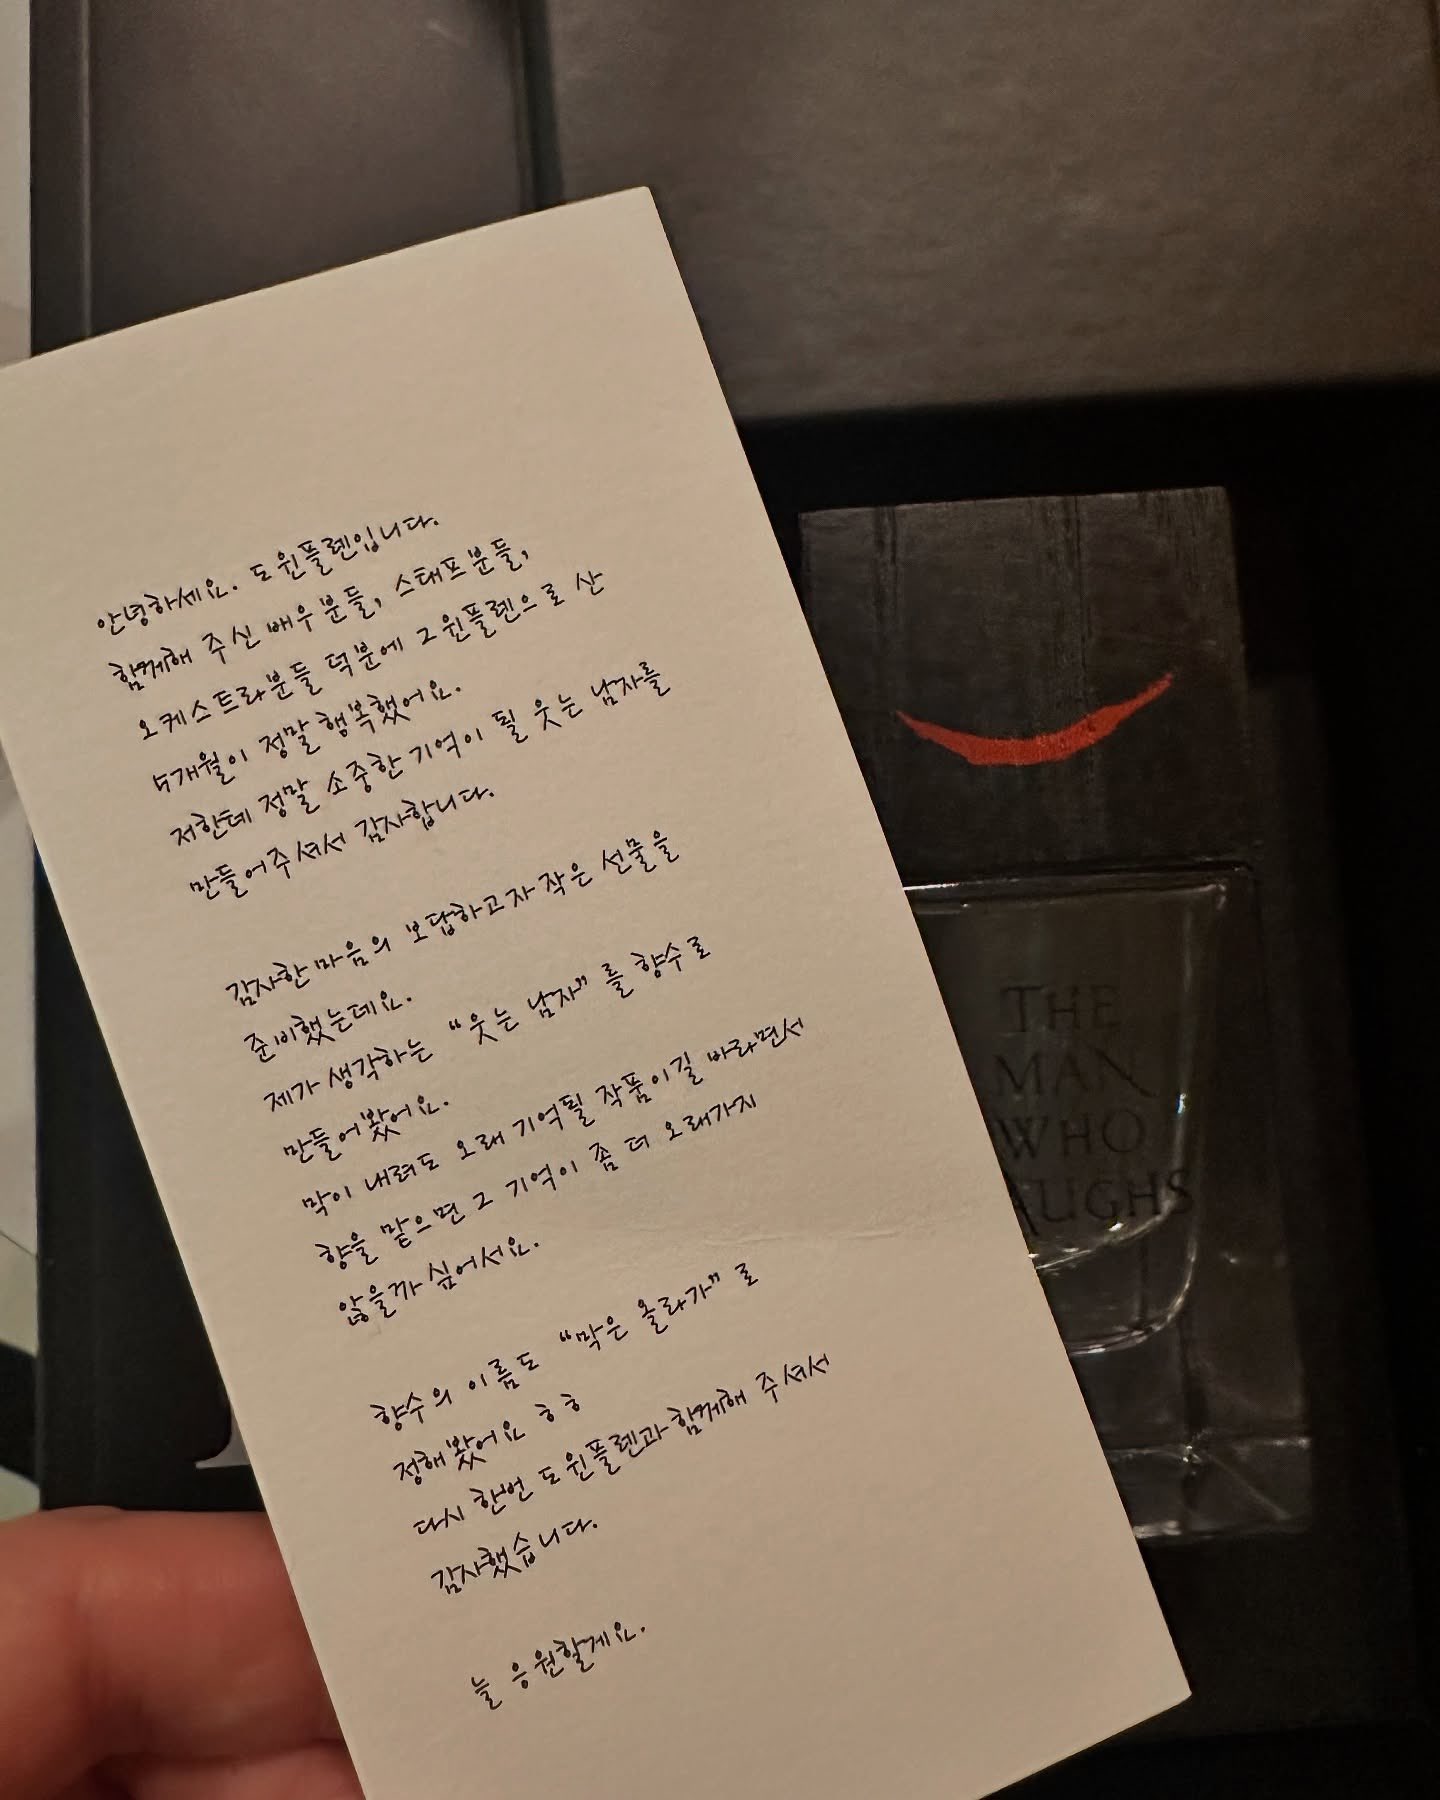 안녕하세요. 도윈플렌입니다.
함께해 주신 배우분들, 스태프분들,
오케스트라분들 덕분에 그윈플렌으로 산
5개월이 정말 행복했어요.
저한테 정말 소중한 기억이 될 웃는 남자를
만들어주셔서 감사합니다.
감사한 마음의 보답하고자 작은 선물을
준비했는데요.
제가 생각하는 “웃는 남자”를 향수로
만들어봤어요.
막이 내려도 오래 기억될 작품이길 바라면서
향을 맡으면 그 기억이 좀 더 오래가지
않을까 싶어서요.
향수의 이름도 “막은 올라가”로
정해봤어요 ㅎㅎ
다시 한번 도윈플렌과 함께해 주셔서
감사했습니다.
늘 응원할게요.
THE
MAN
WHO
LAUGHS